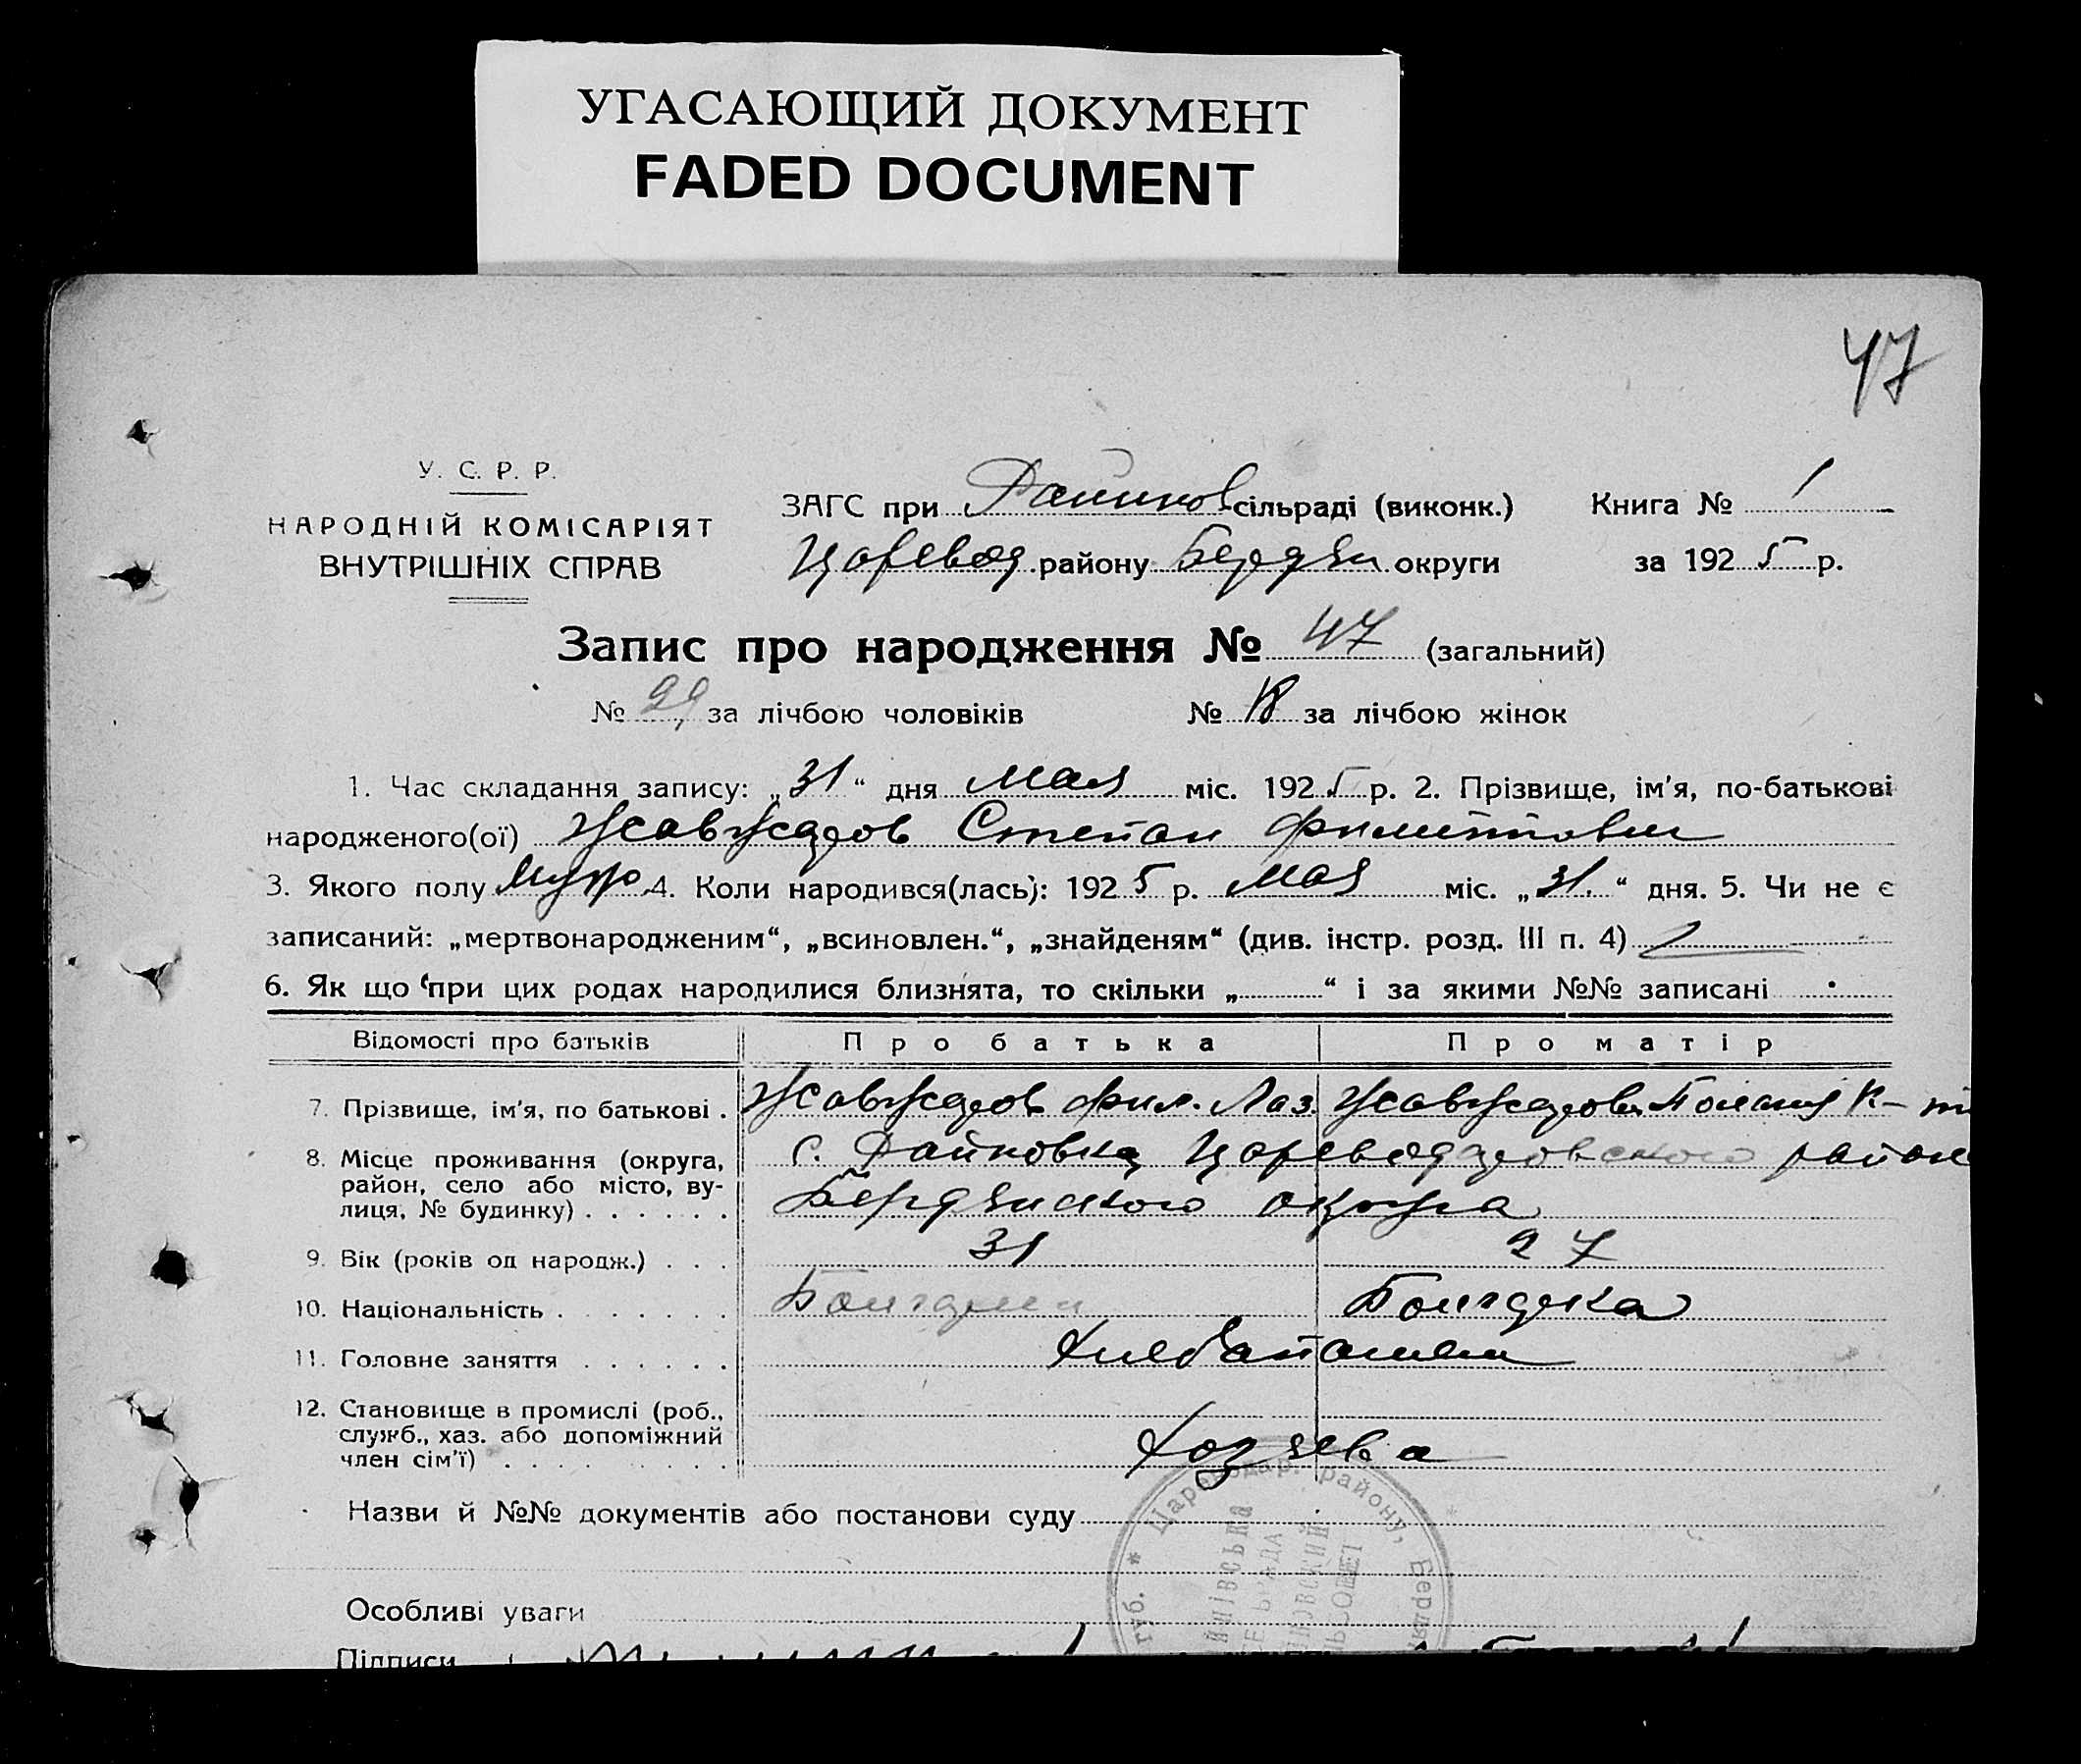 УГАСАЮЩИЙ ДОКУМЕНТ
FADED DOCUMENT
47
У. С. Р. Р.
НАРОДНІЙ КОМІСАРІЯТ
ВНУТРІШНІХ СПРАВ
ЗАГС при Райнов сільраді (виконк.)
Царевод району Бердян округи
Книга № 1
за 1925 р.
Запис про народження № 47 (загальний)
№ 29 за лічбою чоловіків № 18 за лічбою жінок
1. Час складання запису: „31“ дня Мая міс. 1925 р. 2. Прізвище, ім'я, по-батькові
народженого(ої) Степан Филиппович
3. Якого полу Мужо 4. Коли народився(лась): 1925 р. Мая міс. „31.“ дня. 5. Чи не є
записаний: „мертвонародженим“, „всиновлен.“, „знайденям“ (див. інстр. розд. III п. 4)
6. Як що при цих родах народилися близнята, то скільки „ “ і за якими №№ записані
Відомості про батьків Про батька Про матір
7. Прізвище, ім'я, по батькові . Фил. Лаз.
8. Місце проживання (округа, с. Райновка Цареводаровского район
район, село або місто, ву-
лиця, № будинку) . . . . . . Бердянского округа
9. Вік (років од народж.) . . . 31 27
10. Національність . . . . . . . Болгарин Болгарка
11. Головне заняття . . . . . . Хлебопашен
12. Становище в промислі (роб.,
служб., хаз. або допоміжний
член сім'ї) . . . . . . . . . Хозяева
Назви й №№ документів або постанови суду
Особливі уваги
Підписи